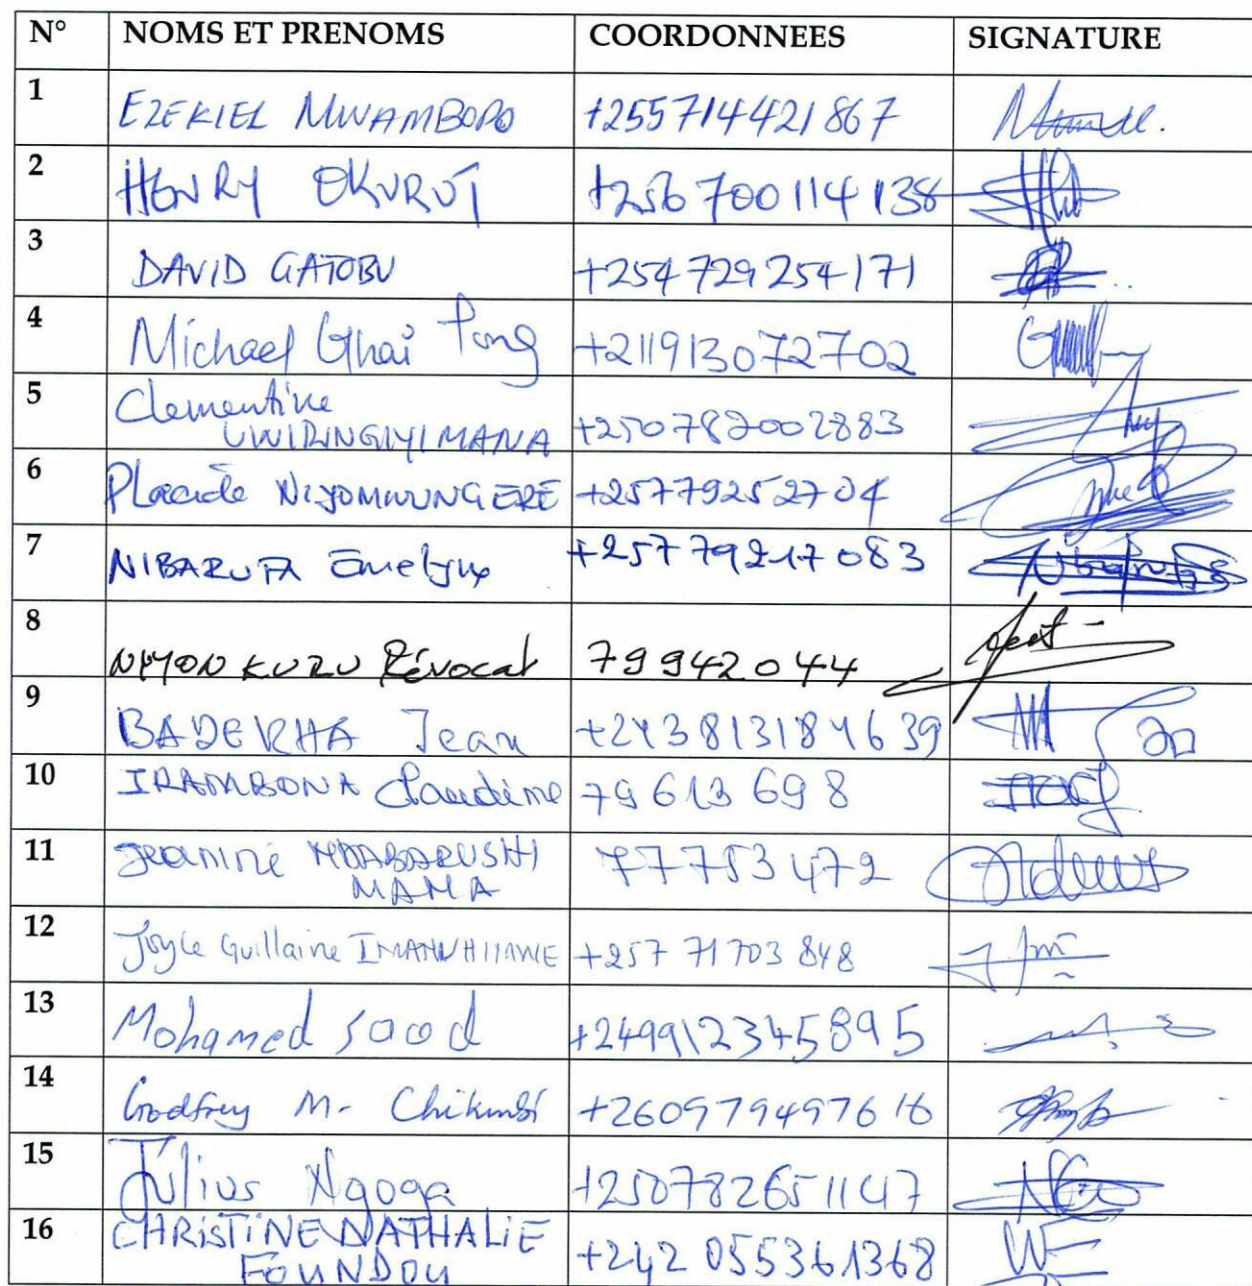 N° NOMS ET PRENOMS COORDONNEES SIGNATURE
1 EZEKIEL MWAMBOPO +255714421867
2 HENRY OKURUT +256 700114138
3 DAVID GATOBU +254 729 254171
4 Michael Ghai Tong +211913072702
5 Clementine
UWIRINGIYIMANA +250782002883
6 Placide NIYOMWUNGERE +25779252704
7 NIBARUTA Emelyne +257 79217083
8 NIYONKURU Révocat 79942044
9 BADERHA Jean +243813184639
10 IRAMBONA Claudine 79613698
11 Jeanine
MAMA 77753472
12 Joyce Guillaine +257 71703848
13 Mohamed saod +249912345895
14 Godfrey M. +260979497616
15 Julius Ngoga +250782651147
16 CHRISTINE NATHALIE
FOUNDOU +242 055361368